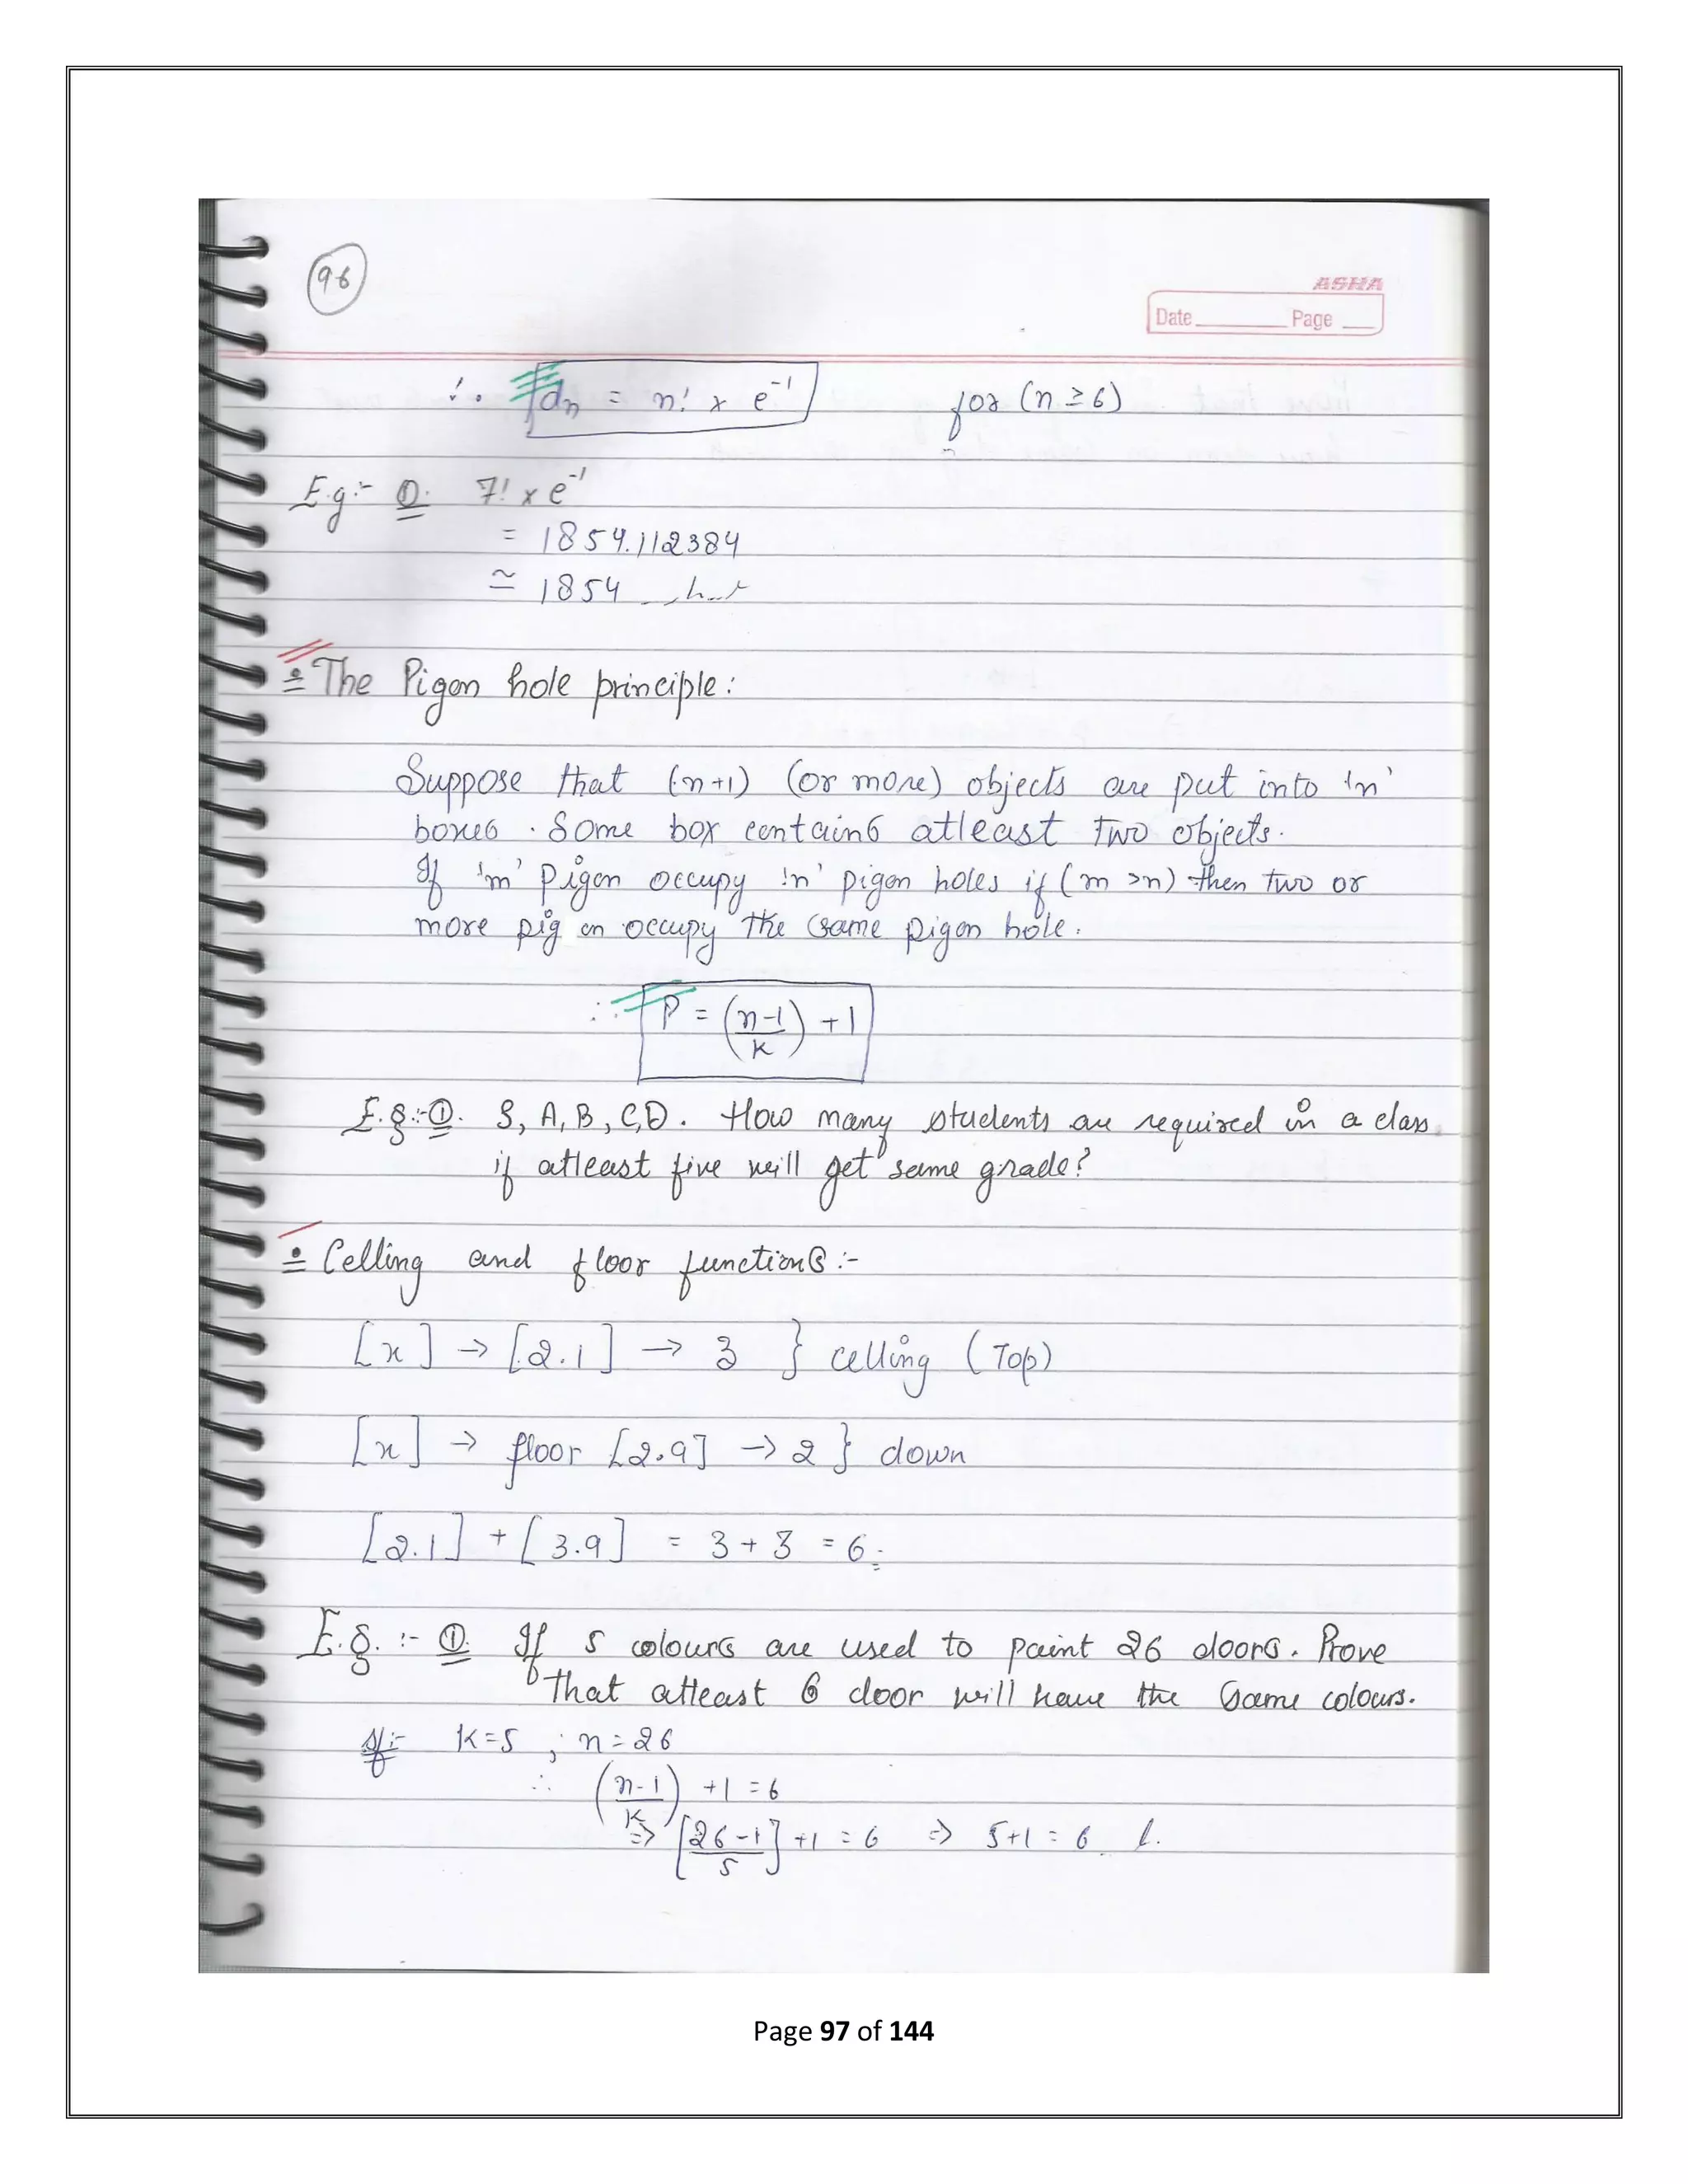 96
ASHA
Date Page
∴ dn = n! × e⁻¹ for (n ≥ 6)
E.g:- ①. 7! × e⁻¹
= 1854.112384
≃ 1854
The Pigon hole principle:
Suppose that (n+1) (or more) objects are put into 'n'
boxes. Some box contains atleast two objects.
If 'm' Pigon occupy 'n' pigon holes if (m >n) then two or
more pigon occupy the same pigon hole.
∴ P = (n-1/K) + 1
E.g:-①. S, A, B, C, D. How many students are required in a class
if atleast five will get same grade?
Celling and floor functions:-
[x] → [2.1] → 3 } celling (Top)
[x] → floor [2.9] → 2 } down
[2.1] + [3.9] = 3 + 3 = 6
E.g. :- ①. If 5 colours are used to paint 26 doors. Prove
that atleast 6 door will have the same colours.
K=5 , n=26
∴ (n-1/K) +1 = 6
⇒ [26-1/5] +1 = 6 ⇒ 5+1 = 6
Page 97 of 144